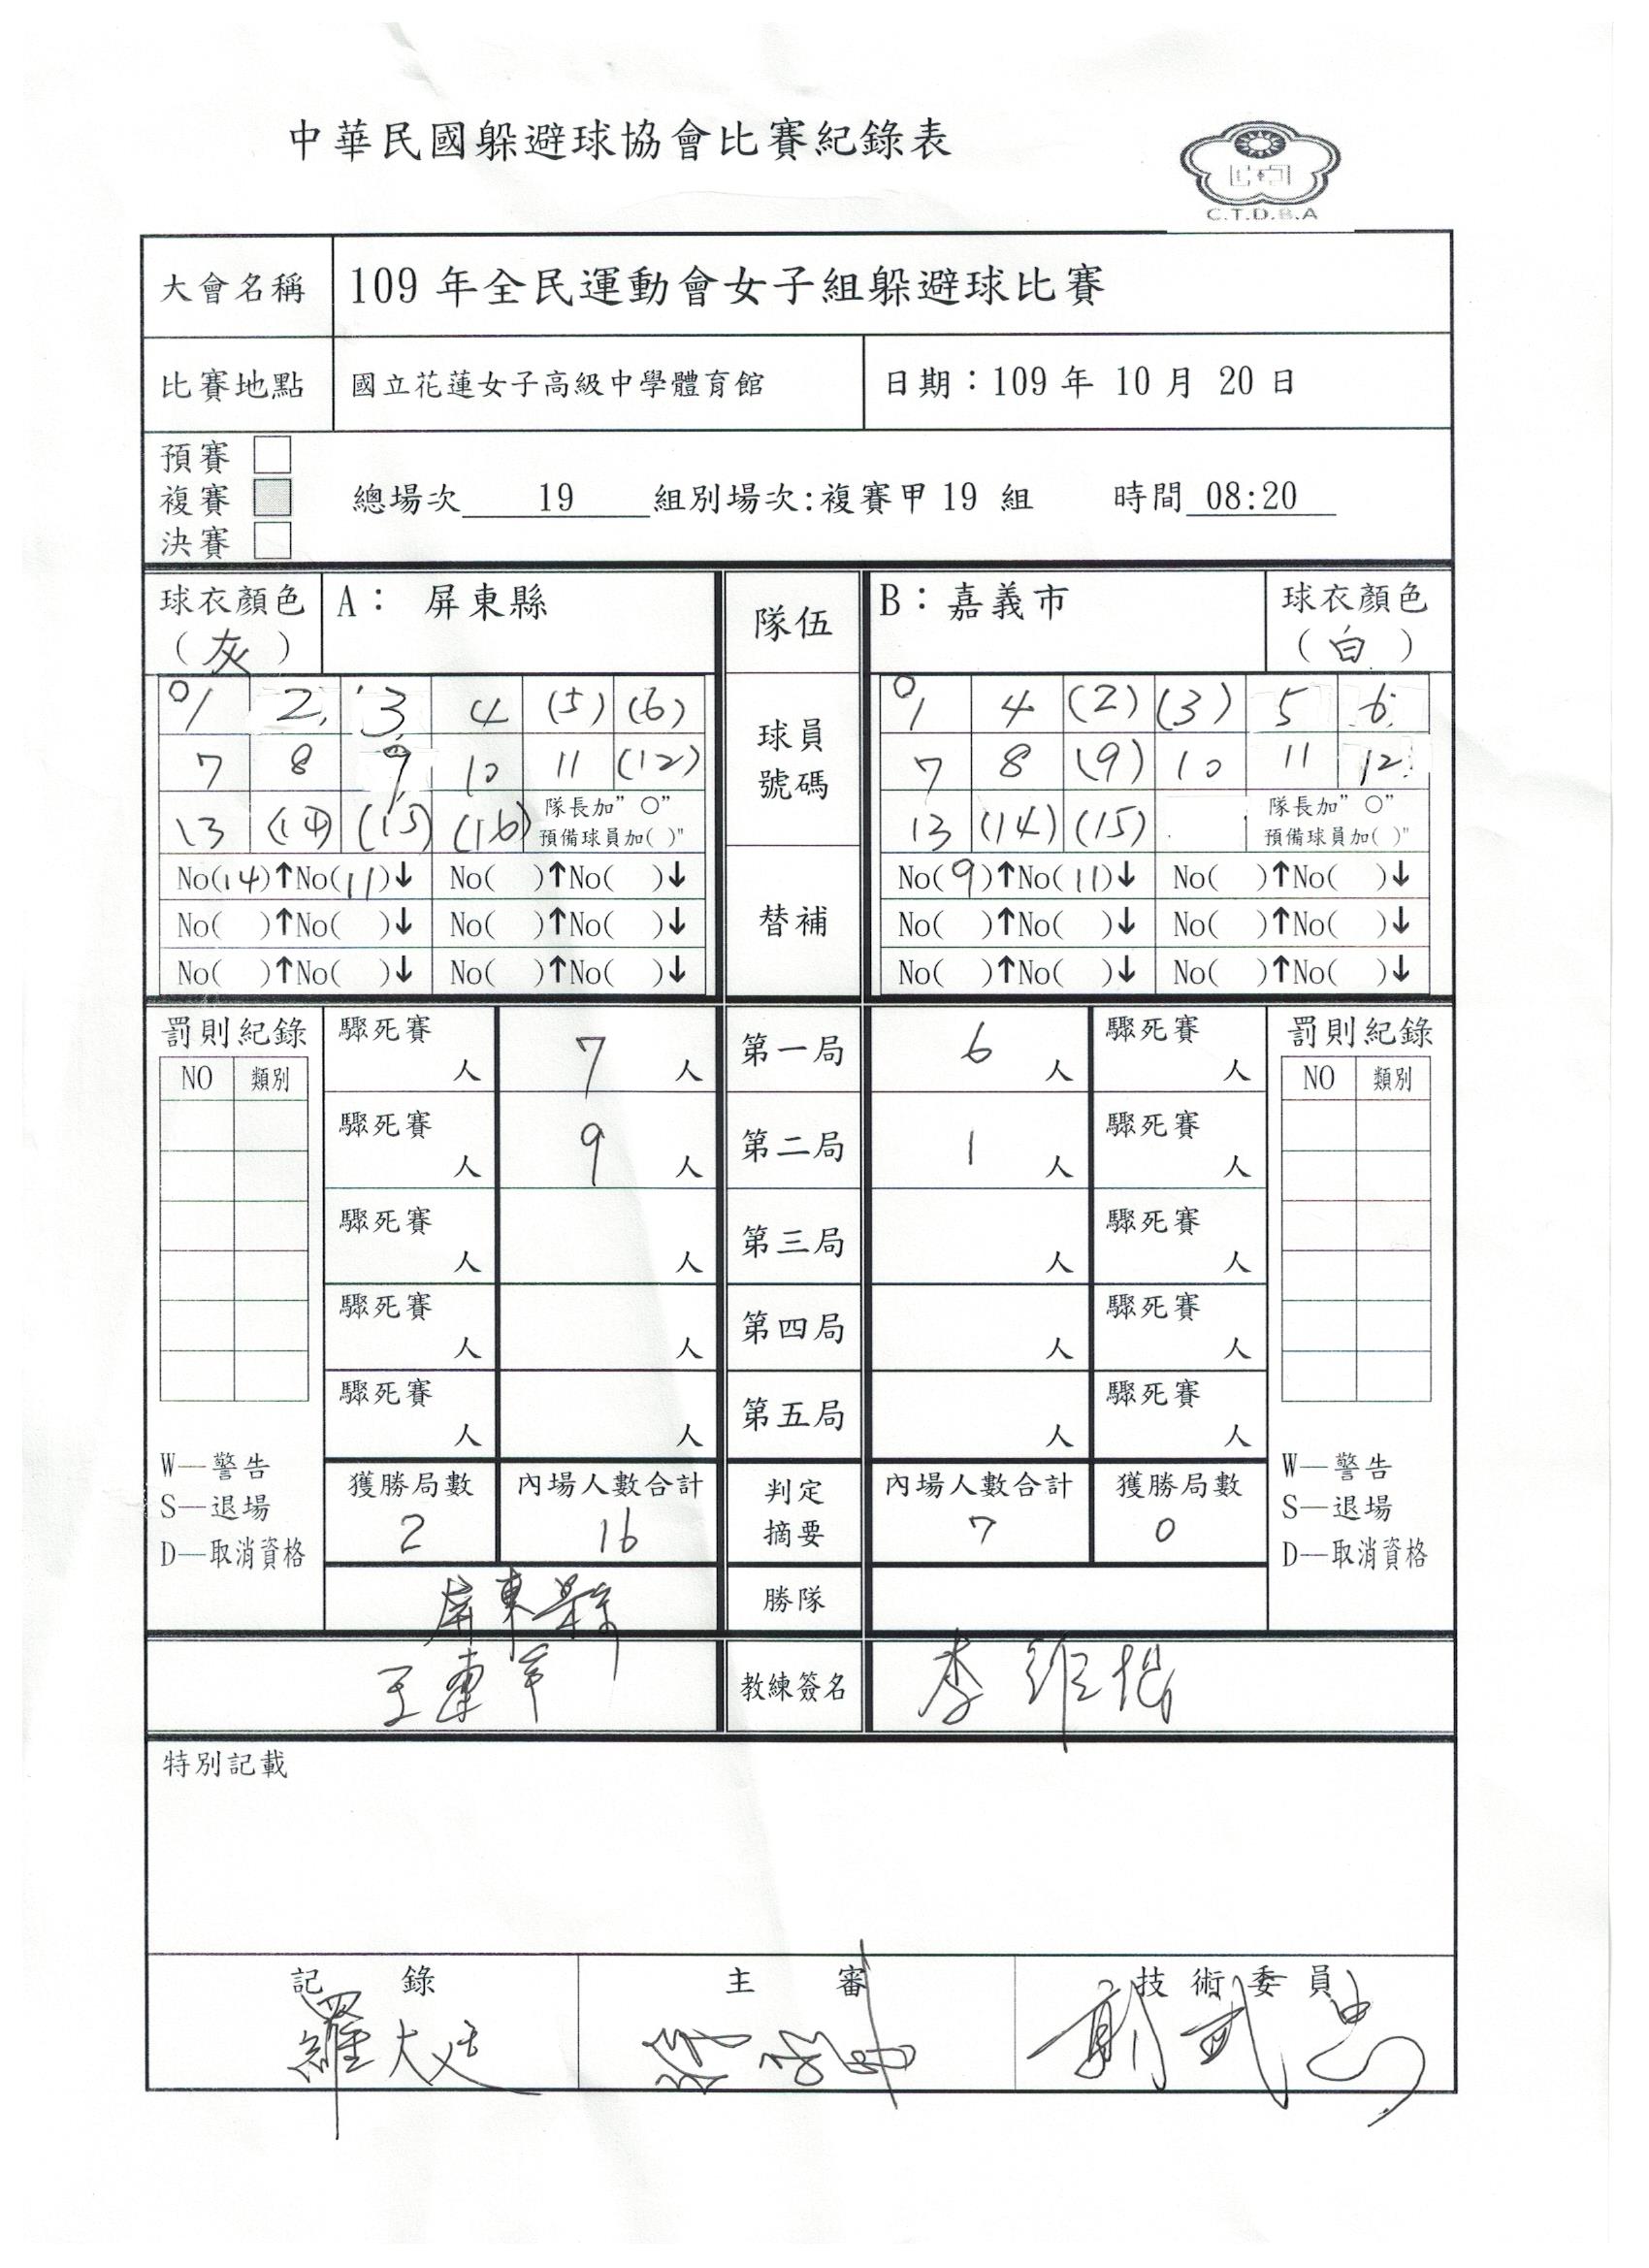 中華民國躲避球協會比賽紀錄表
C.T.D.B.A
大會名稱 109 年全民運動會女子組躲避球比賽
比賽地點 國立花蓮女子高級中學體育館 日期：109 年 10 月 20 日
預賽
複賽 總場次 19 組別場次:複賽甲 19 組 時間 08:20
決賽
球衣顏色 A： 屏東縣 隊伍 B：嘉義市 球衣顏色
（灰） （白）
1 2 3 4 (5) (6) 球員 1 4 (2) (3) 5 6
7 8 9 10 11 (12) 號碼 7 8 (9) 10 11 12
13 (14) (15) (16) 隊長加"○" 13 (14) (15) 隊長加"○"
預備球員加( )" 預備球員加( )"
No(14)↑No(11)↓ No( )↑No( )↓ 替補 No(9)↑No(11)↓ No( )↑No( )↓
No( )↑No( )↓ No( )↑No( )↓ No( )↑No( )↓ No( )↑No( )↓
No( )↑No( )↓ No( )↑No( )↓ No( )↑No( )↓ No( )↑No( )↓
罰則紀錄 驟死賽 人 7 人 第一局 6 人 驟死賽 人 罰則紀錄
NO 類別 NO 類別
驟死賽 人 9 人 第二局 1 人 驟死賽 人
驟死賽 人 人 第三局 人 驟死賽 人
驟死賽 人 人 第四局 人 驟死賽 人
驟死賽 人 人 第五局 人 驟死賽 人
W—警告 獲勝局數 內場人數合計 判定 內場人數合計 獲勝局數 W—警告
S—退場 2 16 摘要 7 0 S—退場
D—取消資格 D—取消資格
屏東縣 勝隊
教練簽名 李
特別記載
記 錄 主 審 技 術 委 員
羅大